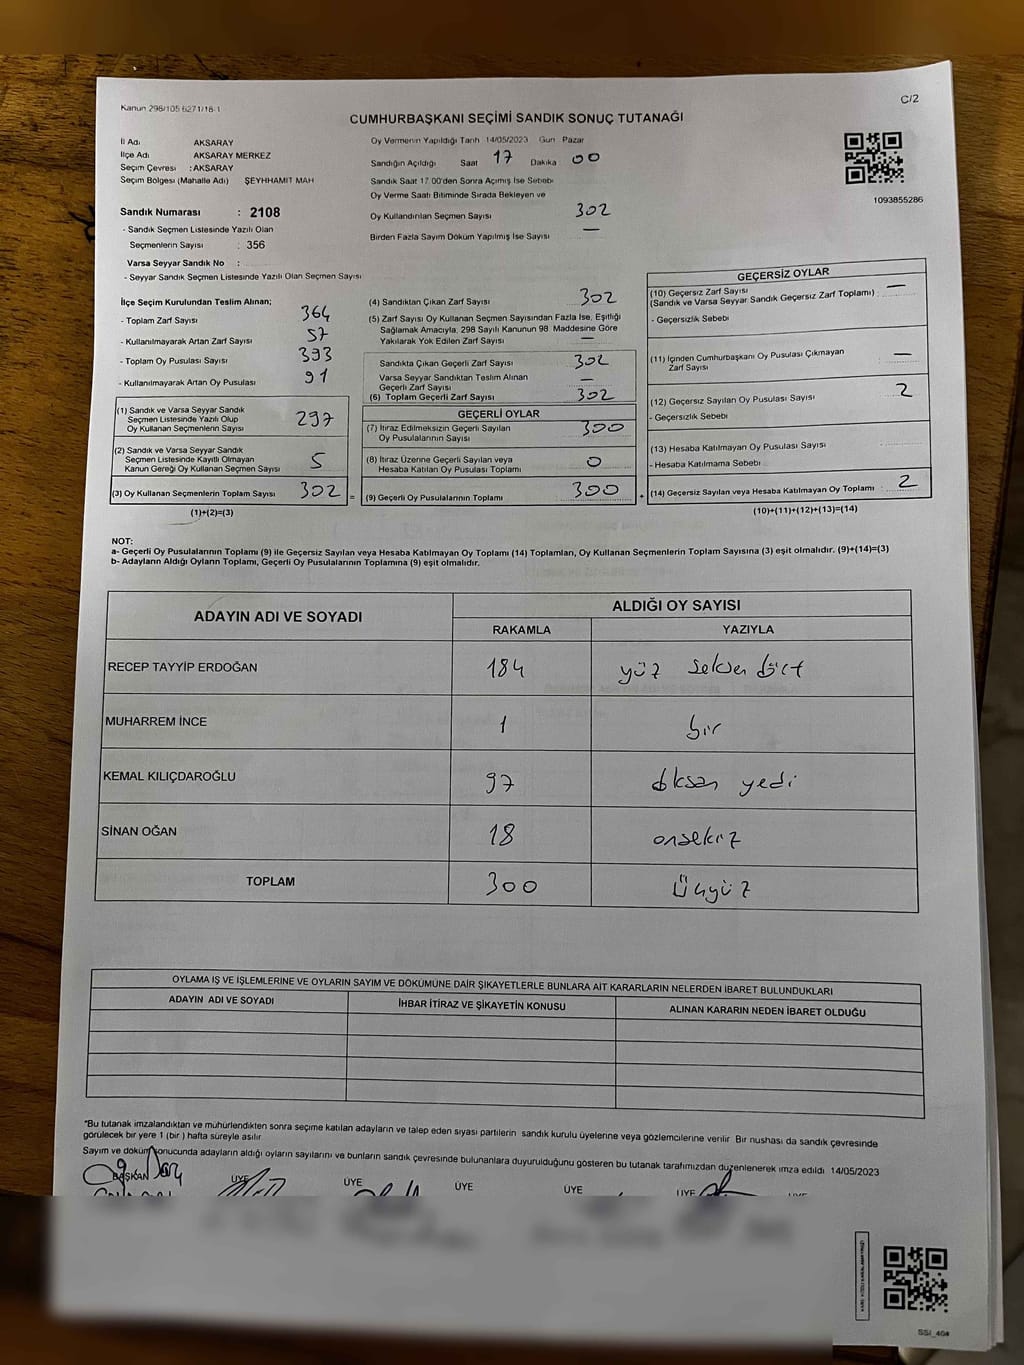 Kanun 298/105 6271/18-1
C/2
CUMHURBAŞKANI SEÇİMİ SANDIK SONUÇ TUTANAĞI
İl Adı AKSARAY
İlçe Adı AKSARAY MERKEZ
Seçim Çevresi : AKSARAY
Seçim Bölgesi (Mahalle Adı) ŞEYHHAMİT MAH
Oy Vermenin Yapıldığı Tarih 14/05/2023 Gün Pazar
Sandığın Açıldığı Saat 17 Dakika 00
Sandık Saat 17.00'den Sonra Açımış İse Sebebi
Oy Verme Saati Bitiminde Sırada Bekleyen ve
Oy Kullandırılan Seçmen Sayısı 302
Birden Fazla Sayım Döküm Yapılmış İse Sayısı —
1093855286
Sandık Numarası : 2108
- Sandık Seçmen Listesinde Yazılı Olan
Seçmenlerin Sayısı : 356
Varsa Seyyar Sandık No :
- Seyyar Sandık Seçmen Listesinde Yazılı Olan Seçmen Sayısı
İlçe Seçim Kurulundan Teslim Alınan;
- Toplam Zarf Sayısı 364
- Kullanılmayarak Artan Zarf Sayısı 57
- Toplam Oy Pusulası Sayısı 393
- Kullanılmayarak Artan Oy Pusulası 91
(1) Sandık ve Varsa Seyyar Sandık
Seçmen Listesinde Yazılı Olup
Oy Kullanan Seçmenlerin Sayısı 297
(2) Sandık ve Varsa Seyyar Sandık
Seçmen Listesinde Kayıtlı Olmayan
Kanun Gereği Oy Kullanan Seçmen Sayısı 5
(3) Oy Kullanan Seçmenlerin Toplam Sayısı 302 =
(1)+(2)=(3)
(4) Sandıktan Çıkan Zarf Sayısı 302
(5) Zarf Sayısı Oy Kullanan Seçmen Sayısından Fazla İse, Eşitliği
Sağlamak Amacıyla, 298 Sayılı Kanunun 98. Maddesine Göre
Yakılarak Yok Edilen Zarf Sayısı —
Sandıkta Çıkan Geçerli Zarf Sayısı 302
Varsa Seyyar Sandıktan Teslim Alınan
Geçerli Zarf Sayısı —
(6) Toplam Geçerli Zarf Sayısı 302
GEÇERLİ OYLAR
(7) İtiraz Edilmeksizin Geçerli Sayılan
Oy Pusulalarının Sayısı 300
(8) İtiraz Üzerine Geçerli Sayılan veya
Hesaba Katılan Oy Pusulası Toplamı 0
(9) Geçerli Oy Pusulalarının Toplamı 300 +
GEÇERSİZ OYLAR
(10) Geçersiz Zarf Sayısı —
(Sandık ve Varsa Seyyar Sandık Geçersiz Zarf Toplamı) :
- Geçersizlik Sebebi
(11) İçinden Cumhurbaşkanı Oy Pusulası Çıkmayan
Zarf Sayısı —
(12) Geçersiz Sayılan Oy Pusulası Sayısı 2
- Geçersizlik Sebebi
(13) Hesaba Katılmayan Oy Pusulası Sayısı
- Hesaba Katılmama Sebebi
(14) Geçersiz Sayılan veya Hesaba Katılmayan Oy Toplamı : 2
(10)+(11)+(12)+(13)=(14)
NOT:
a- Geçerli Oy Pusulalarının Toplamı (9) ile Geçersiz Sayılan veya Hesaba Katılmayan Oy Toplamı (14) Toplamları, Oy Kullanan Seçmenlerin Toplam Sayısına (3) eşit olmalıdır. (9)+(14)=(3)
b- Adayların Aldığı Oyların Toplamı, Geçerli Oy Pusulalarının Toplamına (9) eşit olmalıdır.
ADAYIN ADI VE SOYADI
ALDIĞI OY SAYISI
RAKAMLA YAZIYLA
RECEP TAYYİP ERDOĞAN 184 yüz seksen dört
MUHARREM İNCE 1 bir
KEMAL KILIÇDAROĞLU 97 doksan yedi
SİNAN OĞAN 18 onsekiz
TOPLAM 300 üçyüz
OYLAMA İŞ VE İŞLEMLERİNE VE OYLARIN SAYIM VE DÖKÜMÜNE DAİR ŞİKAYETLERLE BUNLARA AİT KARARLARIN NELERDEN İBARET BULUNDUKLARI
ADAYIN ADI VE SOYADI İHBAR İTİRAZ VE ŞİKAYETİN KONUSU ALINAN KARARIN NEDEN İBARET OLDUĞU
"Bu tutanak imzalandıktan ve mühürlendikten sonra seçime katılan adayların ve talep eden siyasi partilerin sandık kurulu üyelerine veya gözlemcilerine verilir. Bir nushası da sandık çevresinde
görülecek bir yere 1 (bir) hafta süreyle asılır
Sayım ve döküm sonucunda adayların aldığı oyların sayılarını ve bunların sandık çevresinde bulunanlara duyurulduğunu gösteren bu tutanak tarafımızdan düzenlenerek imza edildi 14/05/2023
BAŞKAN ÜYE ÜYE ÜYE ÜYE ÜYE ÜYE
SSI_40#